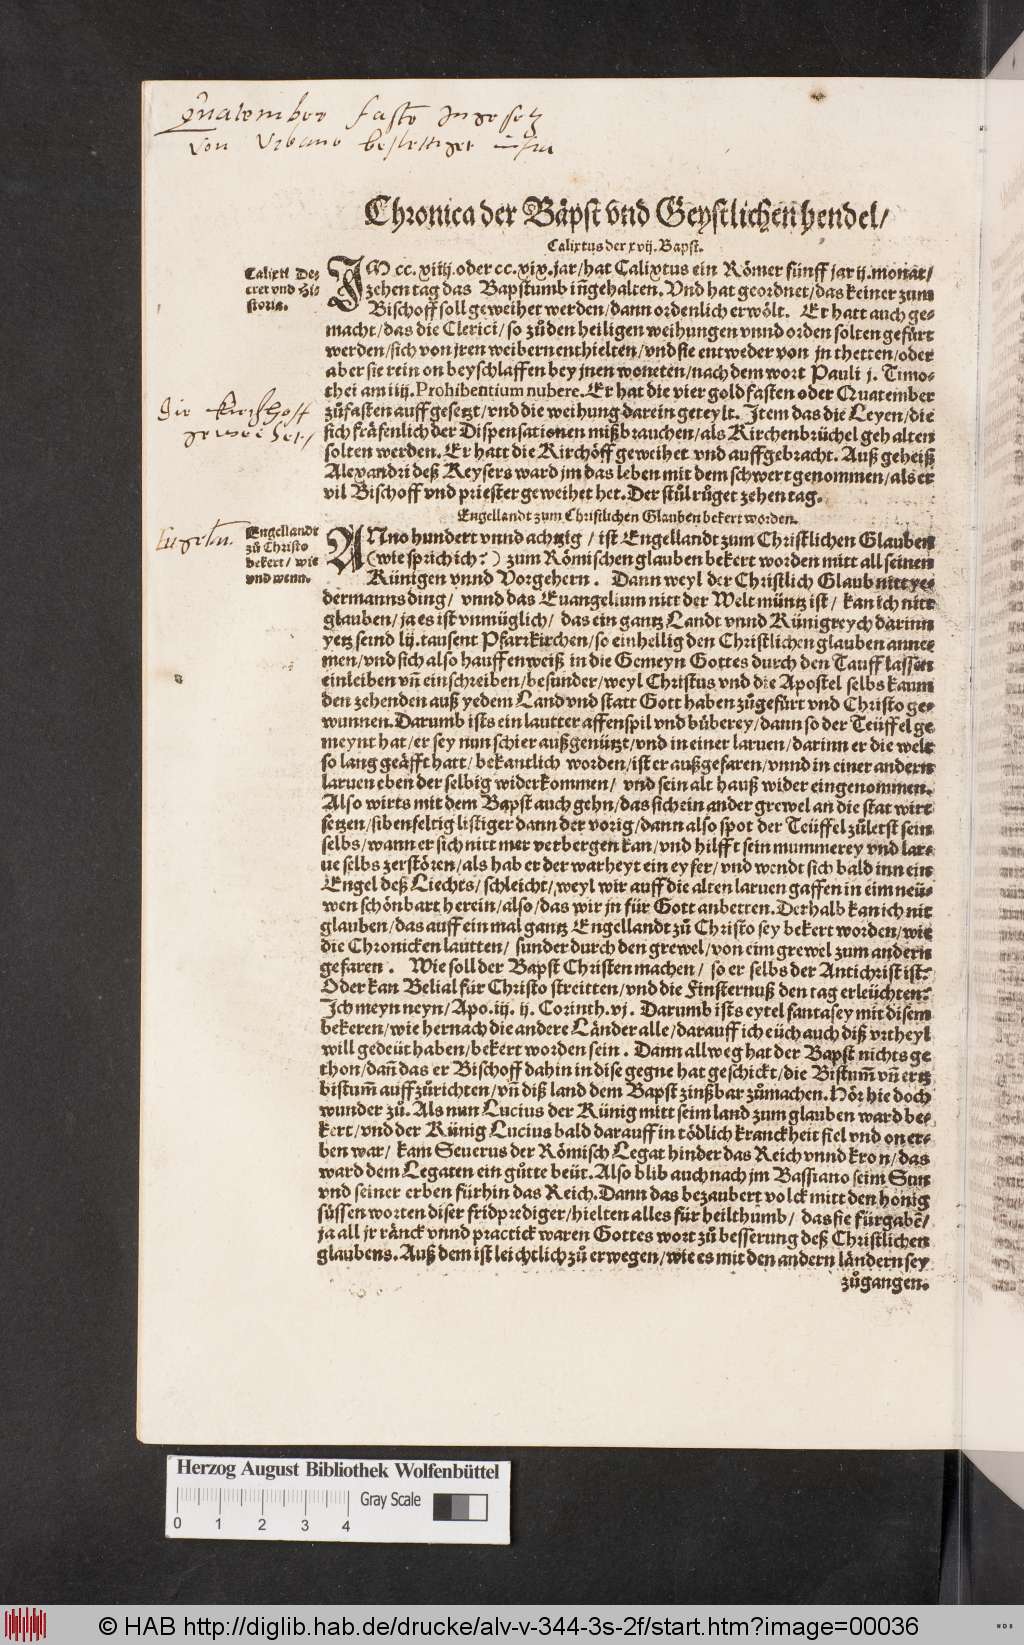 Quatember fasto
von Urbano bestettiget infra
Chronica der Bäpst vnd Geystlichen hendel/
Calixtus der xvij. Bapst.
Calixti De⸗
cret vnd Hi⸗
storia.
IM cc. xiiij. oder cc. xix. jar/ hat Calixtus ein Römer fünff jar ij. monat/
zehen tag das Bapstumb iñgehalten. Vnd hat geordnet/ das keiner zum
Bischoff soll geweihet werden/ dann ordenlich erwölt. Er hatt auch ge⸗
macht/ das die Clerici/ so zů den heiligen weihungen vnnd orden solten gefürt
werden/ sich von jren weibern enthielten/ vnd sie entweder von jn thetten/ oder
aber sie rein on beyschlaffen bey jnen woneten/ nach dem wort Pauli j. Timo⸗
thei am iiij. Prohibentium nubere. Er hat die vier goldfasten oder Quatember
zůfasten auffgesetzt/ vnd die weihung darein geteylt. Item das die Leyen/ die
sich fräfenlich der Dispensationen mißbrauchen/ als Kirchenbrüchel gehalten
solten werden. Er hatt die Kirchöff geweihet vnd auffgebracht. Auß geheiß
Alexandri deß Keysers ward jm das leben mit dem schwert genommen/ als er
vil Bischoff vnd priester geweihet het. Der stůl růget zehen tag.
Die Kirchhoff
geweihet/
Engellandt zum Christlichen Glauben bekert worden.
Engellandt
zů Christo
bekert/ wie
vnd wenn.
ANno hundert vnnd achtzig/ ist Engellandt zum Christlichen Glauben
(wie sprich ich?) zum Römischen glauben bekert worden mitt all seinen
Künigen vnnd Vorgehern. Dann weyl der Christlich Glaub nitt ye⸗
dermanns ding/ vnnd das Euangelium nitt der Welt müntz ist/ kan ich nitt
glauben/ ja es ist vnmüglich/ das ein gantz Landt vnnd Künigreych darinn
yetz seind lij. tausent Pfarrkirchen/ so einhellig den Christlichen glauben anne⸗
men/ vnd sich also hauffenweiß in die Gemeyn Gottes durch den Tauff lassen
einleiben vñ einschreiben/ besunder/ weyl Christus vnd die Apostel selbs kaum
den zehenden auß yedem Land vnd statt Gott haben zůgefürt vnd Christo ge⸗
wunnen. Darumb ists ein lautter affenspil vnd bůberey/ dann so der Teüffel ge
meynt hat/ er sey nun schier außgenützt/ vnd in einer laruen/ darinn er die welt
so lang geäfft hatt/ bekantlich worden/ ist er außgefaren/ vnnd in einer andern
laruen eben der selbig widerkommen/ vnd sein alt hauß wider eingenommen.
Also wirts mit dem Bapst auch gehn/ das sich ein ander grewel an die stat wirt
setzen/ sibenfeltig listiger dann der vorig/ dann also spot der Teüffel zůletst sein
selbs/ wann er sich nitt mer verbergen kan/ vnd hilfft sein mummerey vnd lar⸗
ue selbs zerstören/ als hab er der warheyt ein eyfer/ vnd wendt sich bald inn ein
Engel deß Liechts/ schleicht/ weyl wir auff die alten laruen gaffen in eim neü⸗
wen schönbart herein/ also/ das wir jn für Gott anbetten. Derhalb kan ich nit
glauben/ das auff ein mal gantz Engellandt zů Christo sey bekert worden/ wie
die Chronicken lautten/ sunder durch den grewel/ von eim grewel zum andern
gefaren. Wie soll der Bapst Christen machen/ so er selbs der Antichrist ist?
Oder kan Belial für Christo streitten/ vnd die Finsternuß den tag erleüchten?
Ich meyn neyn/ Apo. iij. ij. Corinth. vj. Darumb ists eytel fantasey mit disem
bekeren/ wie hernach die andere Länder alle/ darauff ich eüch auch diß vrtheyl
will gedeüt haben/ bekert worden sein. Dann allweg hat der Bapst nichts ge
thon/ dañ das er Bischoff dahin in dise gegne hat geschickt/ die Bistum̃ vñ ertz
bistum̃ auffzůrichten/ vñ diß land dem Bapst zinßbar zůmachen. Hör hie doch
wunder zů. Als nun Lucius der Künig mitt seim land zum glauben ward be⸗
kert/ vnd der Künig Lucius bald darauff in tödlich kranckheit fiel vnd on er⸗
ben war/ kam Seuerus der Römisch Legat hinder das Reich vnnd kron/ das
ward dem Legaten ein gůtte beüt. Also blib auch nach jm Bassiano seim Sun
vnd seiner erben fürhin das Reich. Dann das bezaubert volck mitt den honig
süssen worten diser fridprediger/ hielten alles für heilthumb/ das sie fürgabẽ/
ja all jr ränck vnnd practick waren Gottes wort zů besserung deß Christlichen
glaubens. Auß dem ist leichtlich zů erwegen/ wie es mit den andern ländern sey
zůgangen.
Herzog August Bibliothek Wolfenbüttel
Gray Scale
0 1 2 3 4
© HAB http://diglib.hab.de/drucke/alv-v-344-3s-2f/start.htm?image=00036